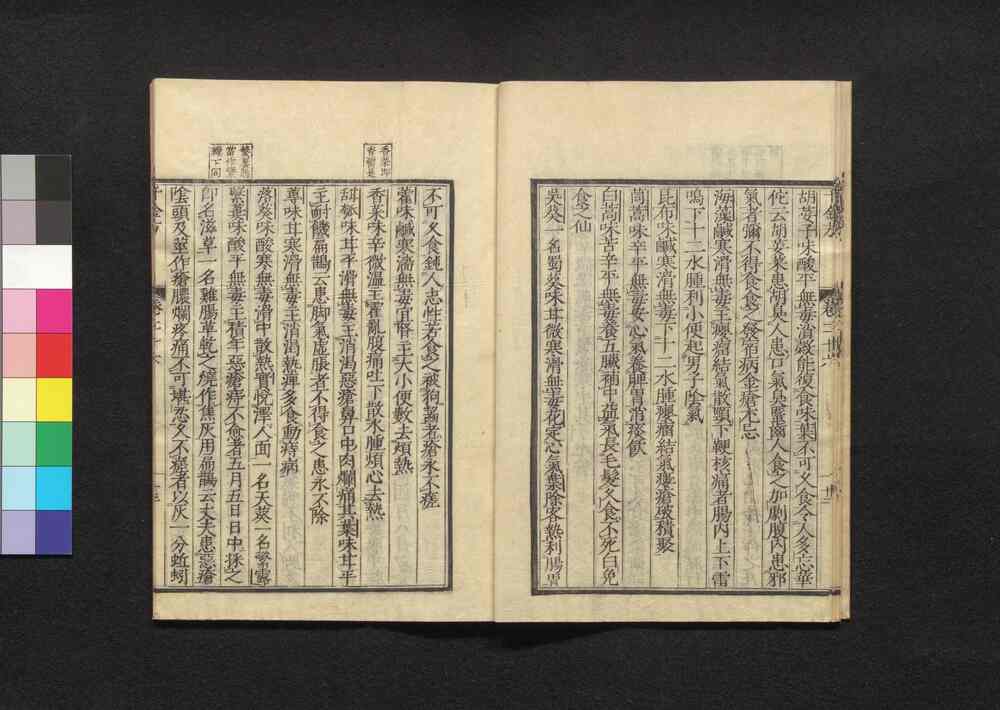 胡荽子味酸平無毒消穀能復食味葉不可久食令人多忘華
佗云胡荽菜患胡臭人患口氣臭䘌齒人食之加劇腹内患邪
氣者彌不得食食之發宿病金瘡尤忌
海藻鹹寒滑無毒主癭瘤結氣散頸下鞕核痛者腸内上下雷
鳴下十二水腫利小便起男子陰氣
昆布味鹹寒滑無毒下十二水腫癭瘤結氣瘻瘡破積聚
茼蒿味辛平無毒安心氣養脾胃消痰飲
白蒿味苦辛平無毒養五臟補中益氣長毛髮久食不死白兔
食之仙
吳葵一名蜀葵味甘微寒滑無毒花定心氣葉除客熱利腸胃
不可久食鈍人志性若食之被狗齧者瘡永不瘥
藿味鹹寒濇無毒宜腎主大小便數去煩熱
香菜味辛微温主霍亂腹痛吐下散水腫煩心去熱
甜瓠味甘平滑無毒主消渴惡瘡鼻口中肉爛痛其葉味甘平
主耐饑扁鵲云患脚氣虛脹者不得食之患永不除
蓴味甘寒滑無毒主消渴熱痺多食動痔病
落葵味酸寒無毒滑中散熱實悅澤人面一名天葵一名蘩露
蘩蔞味酸平無毒主積年惡瘡痔不愈者五月五日日中採之
即名滋草一名雞腸草乾之燒作焦灰用扁鵲云丈夫患惡瘡
陰頭及莖作瘡膿爛疼痛不可堪忍久不瘥者以灰一分蚯蚓
香菜即
卷二十六